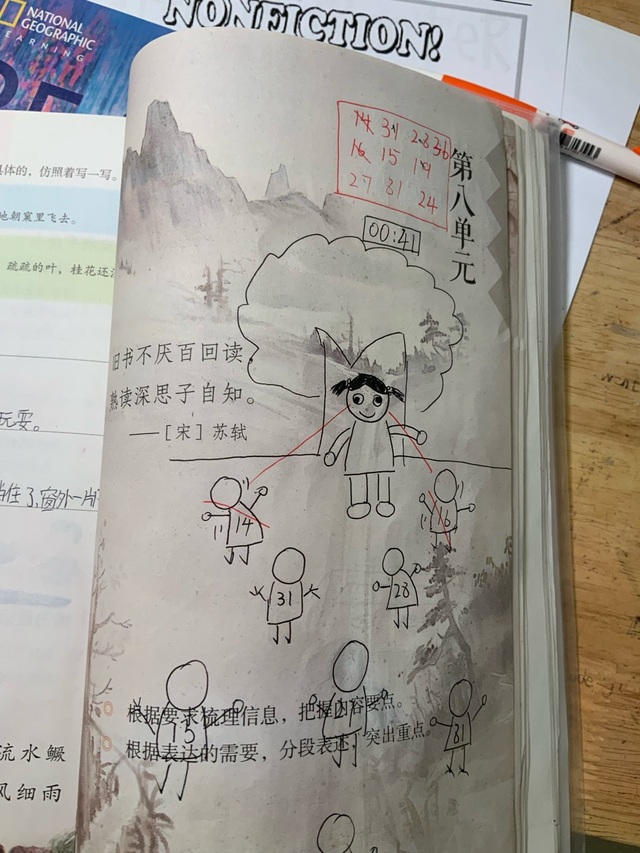 NATIONAL
GEOGRAPHIC
LEARNING
NONFICTION!
具体的，仿照着写一写。
地朝窠里飞去。
疏疏的叶，桂花还
玩耍。
挡住了，窗外一片
流水鳜
风细雨
14 31 28 36
16 15 19
27 81 24
第八单元
00:41
旧书不厌百回读，
熟读深思子自知。
——［宋］苏轼
14
16
31
28
根据要求梳理信息，把握内容要点。
15
根据表达的需要，分段表述，突出重点。
81